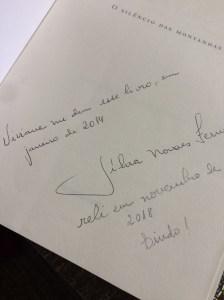 O SILÊNCIO DAS MONTANHAS
Viviane me deu esse livro, em
janeiro de 2014
Sílvia Novaes
reli em novembro de
2018
Lindo!